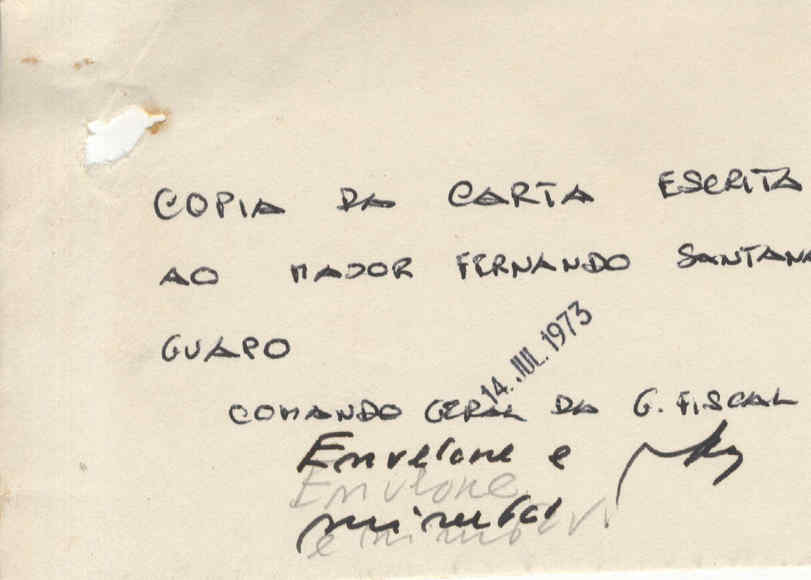 COPIA DA CARTA ESCRITA
AO MAJOR FERNANDO SANTANA
GUAPO
14. JUL. 1973
COMANDO GERAL DA G. FISCAL
Envelone e
Envelone
minuta
e